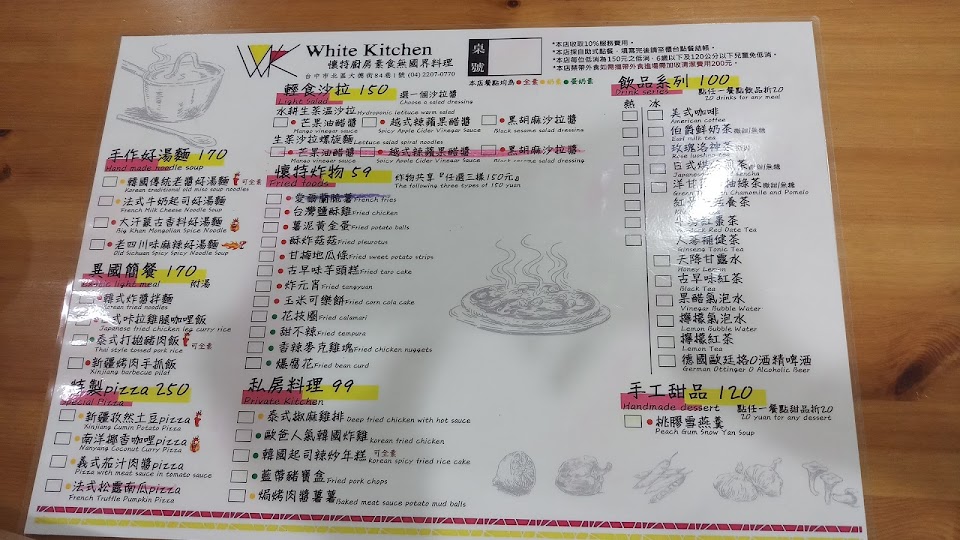 White Kitchen
懷特廚房素食無國界料理
台中市北區大德街84巷1號 (04) 2207-0770
桌號
*本店收取10%服務費用。
*本店採自助式點餐，填寫完後請至櫃台點餐結帳。
*本店每位低消為150元之低消，6歲以下及120公分以下兒童免低消。
*本店禁帶外食如需攜帶外食進場需加收清潔費用200元。
本店餐點均為●全素●奶素●蛋奶素
手作好湯麵 170
Hand made noodle soup
韓國傳統老醬好湯麵 可全素
Korean traditional old miso soup noodles
法式牛奶起司好湯麵
French Milk Cheese Noodle Soup
大汗蒙古香料好湯麵
Big Khan Mongolian Spice Noodle
老四川味麻辣好湯麵
Old Sichuan Spicy Spicy Noodle Soup
異國簡餐 170 附湯
light meal
韓式炸醬拌麵
Korean fried noodles
日式咔拉雞腿咖哩飯
Japanese fried chicken leg curry rice
泰式打拋豬肉飯 可全素
Thai style tossed pork rice
新疆烤肉手抓飯
Xinjiang barbecue pilaf
特製pizza 250
Special Pizza
新疆孜然土豆pizza
Xinjiang Cumin Potato Pizza
南洋椰香咖哩pizza
Nanyang Coconut Curry Pizza
義式茄汁肉醬pizza
Pizza with meat sauce in tomato sauce
法式松露南瓜pizza
French Truffle Pumpkin Pizza
輕食沙拉 150 選一個沙拉醬
Light Salad Choose a salad dressing
水耕生菜溫沙拉 Hydroponic lettuce warm salad
芒果油醋醬 越式辣蘋果醋醬 黑胡麻沙拉醬
Mango vinegar sauce Spicy Apple Cider Vinegar Sauce Black sesame salad dressing
生菜沙拉螺旋麵 Lettuce salad spiral noodles
芒果油醋醬 越式辣蘋果醋醬 黑胡麻沙拉醬
Mango vinegar sauce Spicy Apple Cider Vinegar Sauce salad dressing
懷特炸物 59 炸物共享『任選三樣150元』
Fried foods The following three types of 150 yuan
愛爾蘭脆薯 French fries
台灣鹽酥雞 Fried chicken
薯泥黃金蛋 Fried potato balls
酥炸菇菇 Fried pleurotus
甘梅地瓜條 Fried sweet potato strips
古早味芋頭糕 Fried taro cake
炸元宵 Fried tangyuan
玉米可樂餅 Fried corn cola cake
花枝圈 Fried calamari
甜不辣 Fried tempura
香辣麥克雞塊 Fried chicken nuggets
爆腐花 Fried bean curd
私房料理 99
Private Kitchen
泰式椒麻雞排 Deep fried chicken with hot sauce
歐爸人氣韓國炸雞 korean fried chicken
韓國起司辣炒年糕 可全素 Korean spicy fried rice cake
藍帶豬寶盒 Fried pork chops
焗烤肉醬薯薯 Baked meat sauce potato mud balls
飲品系列 100
Drink series 點任一餐點飲品折20
20 drinks for any meal
熱 冰
美式咖啡
American coffee
伯爵鮮奶茶 微甜/無糖
Earl milk tea
玫瑰洛神茶
日式 微甜/無糖
Japanese
洋甘 柚綠茶 微甜/無糖
Chamomile and Pomelo
紅 養茶
紅棗茶
Red Date Tea
人蔘補健茶
Ginseng Tonic Tea
天降甘露水
Honey Lemon
古早味紅茶
Black Tea
果醋氣泡水
Vinegar Bubble Water
檸檬氣泡水
Lemon Bubble Water
檸檬紅茶
Lemon Tea
德國歐廷格0酒精啤酒
German Ottinger 0 Alcoholic Beer
手工甜品 120
Handmade dessert 點任一餐點甜品折20
20 yuan for any dessert
桃膠雪燕羹
Peach Gum Snow Yan Soup